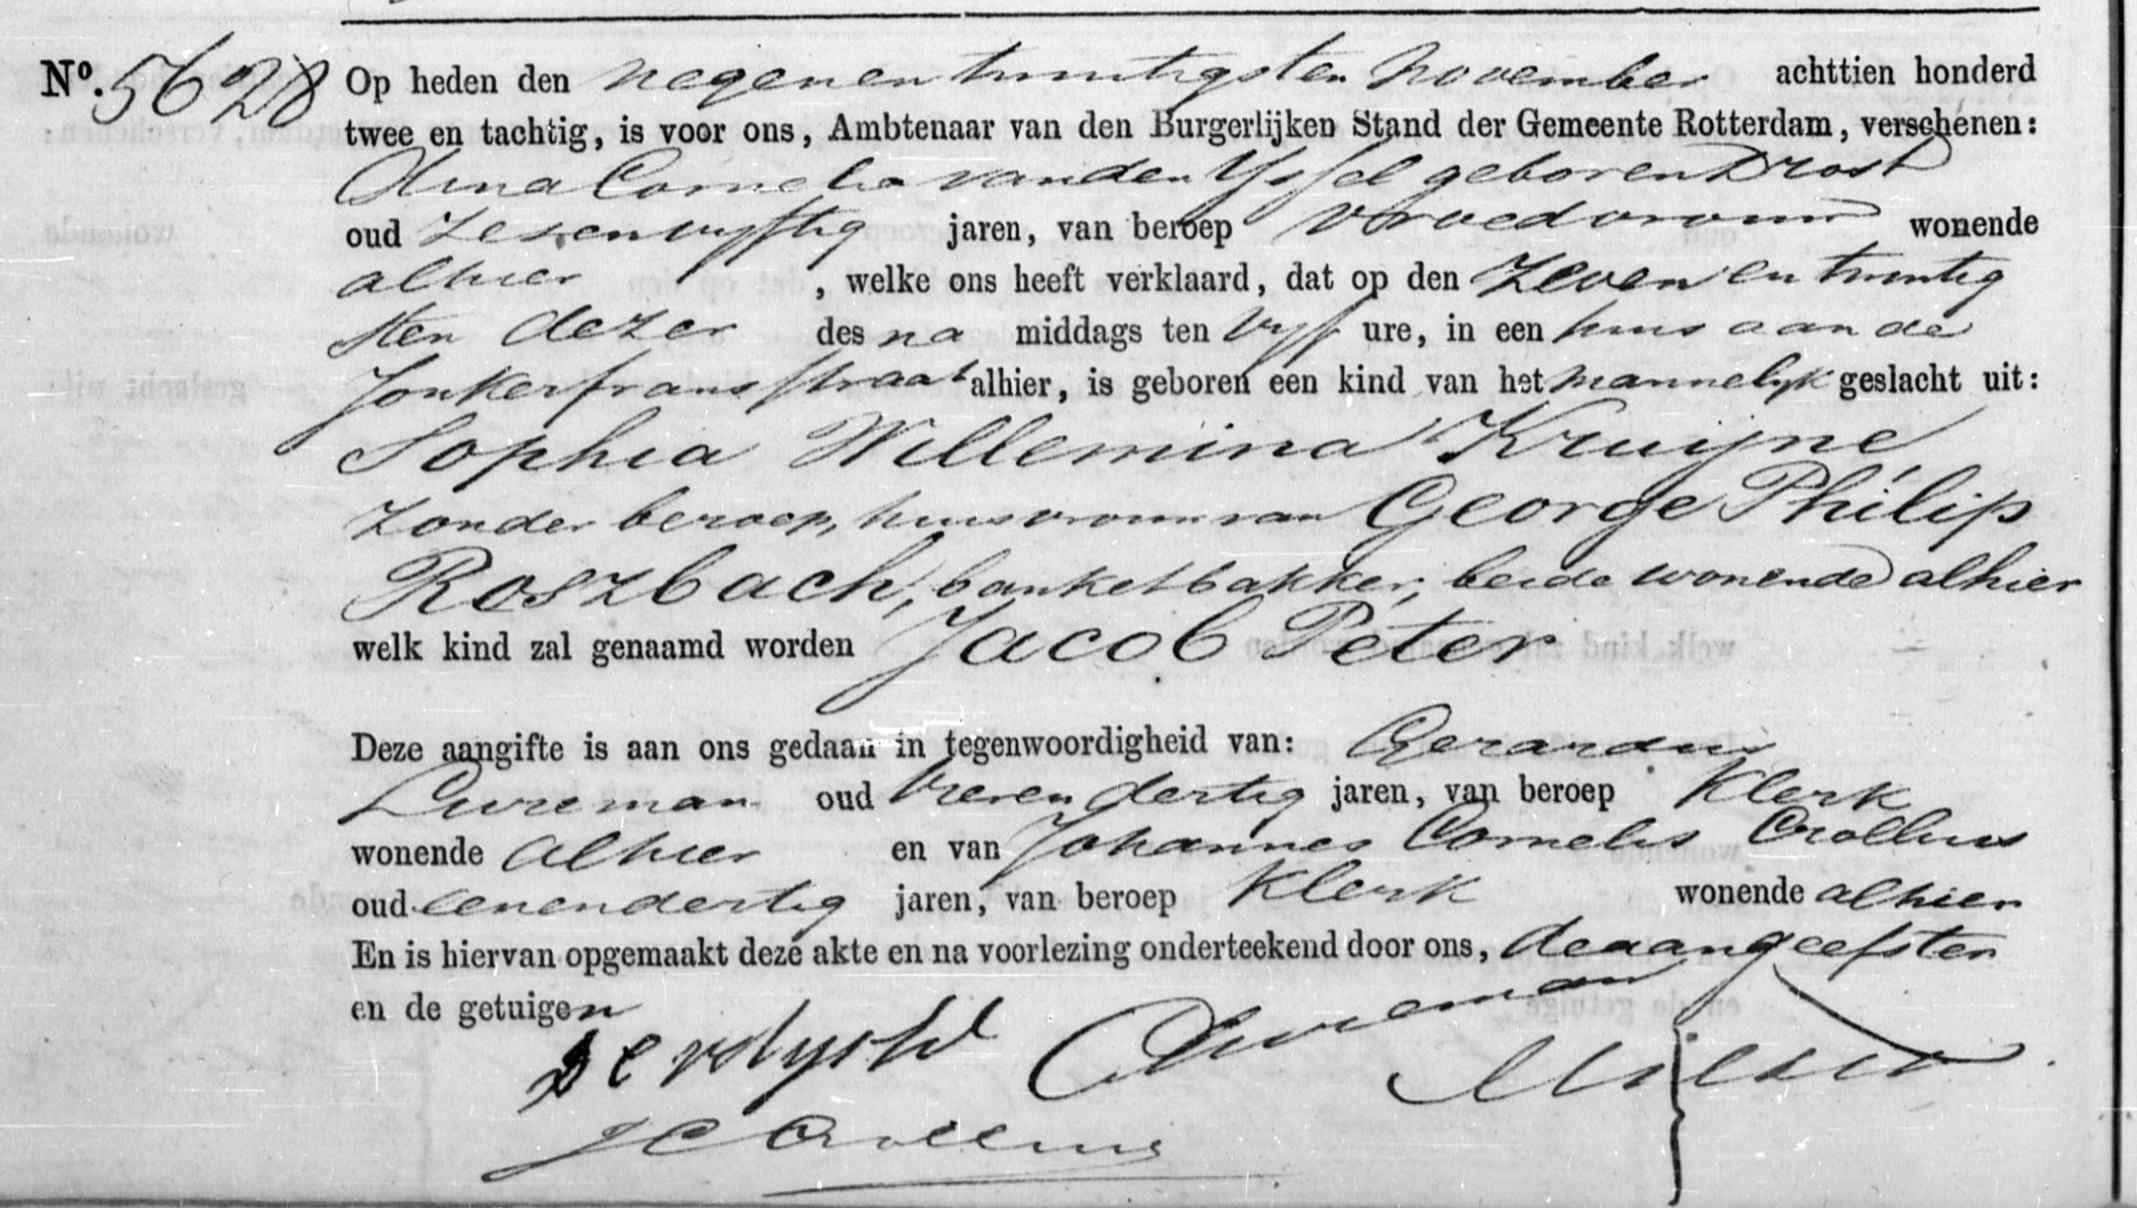 No. 5628 Op heden den negenentwintigsten November achttien honderd
twee en tachtig, is voor ons, Ambtenaar van den Burgerlijken Stand der Gemeente Rotterdam, verschenen:
Alina Cornelia van den Yssel geboren Drost
oud zesenvyftig jaren, van beroep vroedvrouw wonende
alhier , welke ons heeft verklaard, dat op den zeven en twintig
sten dezer des na middags ten vyf ure, in een huis aan de
Jonkerfransstraat alhier, is geboren een kind van het mannelyk geslacht uit:
Sophia Willemina Kruijne
zonder beroep, huisvrouw van George Philip
Roszbach, banketbakker, beide wonende alhier
welk kind zal genaamd worden Jacob Peter
Deze aangifte is aan ons gedaan in tegenwoordigheid van: Gerardus
Lureman oud vierendertig jaren, van beroep klerk
wonende alhier en van Johannes Cornelis Crollius
oud eenendertig jaren, van beroep klerk wonende alhier
En is hiervan opgemaakt deze akte en na voorlezing onderteekend door ons, de aangeefster
en de getuigen
Lureman
J C Crollius